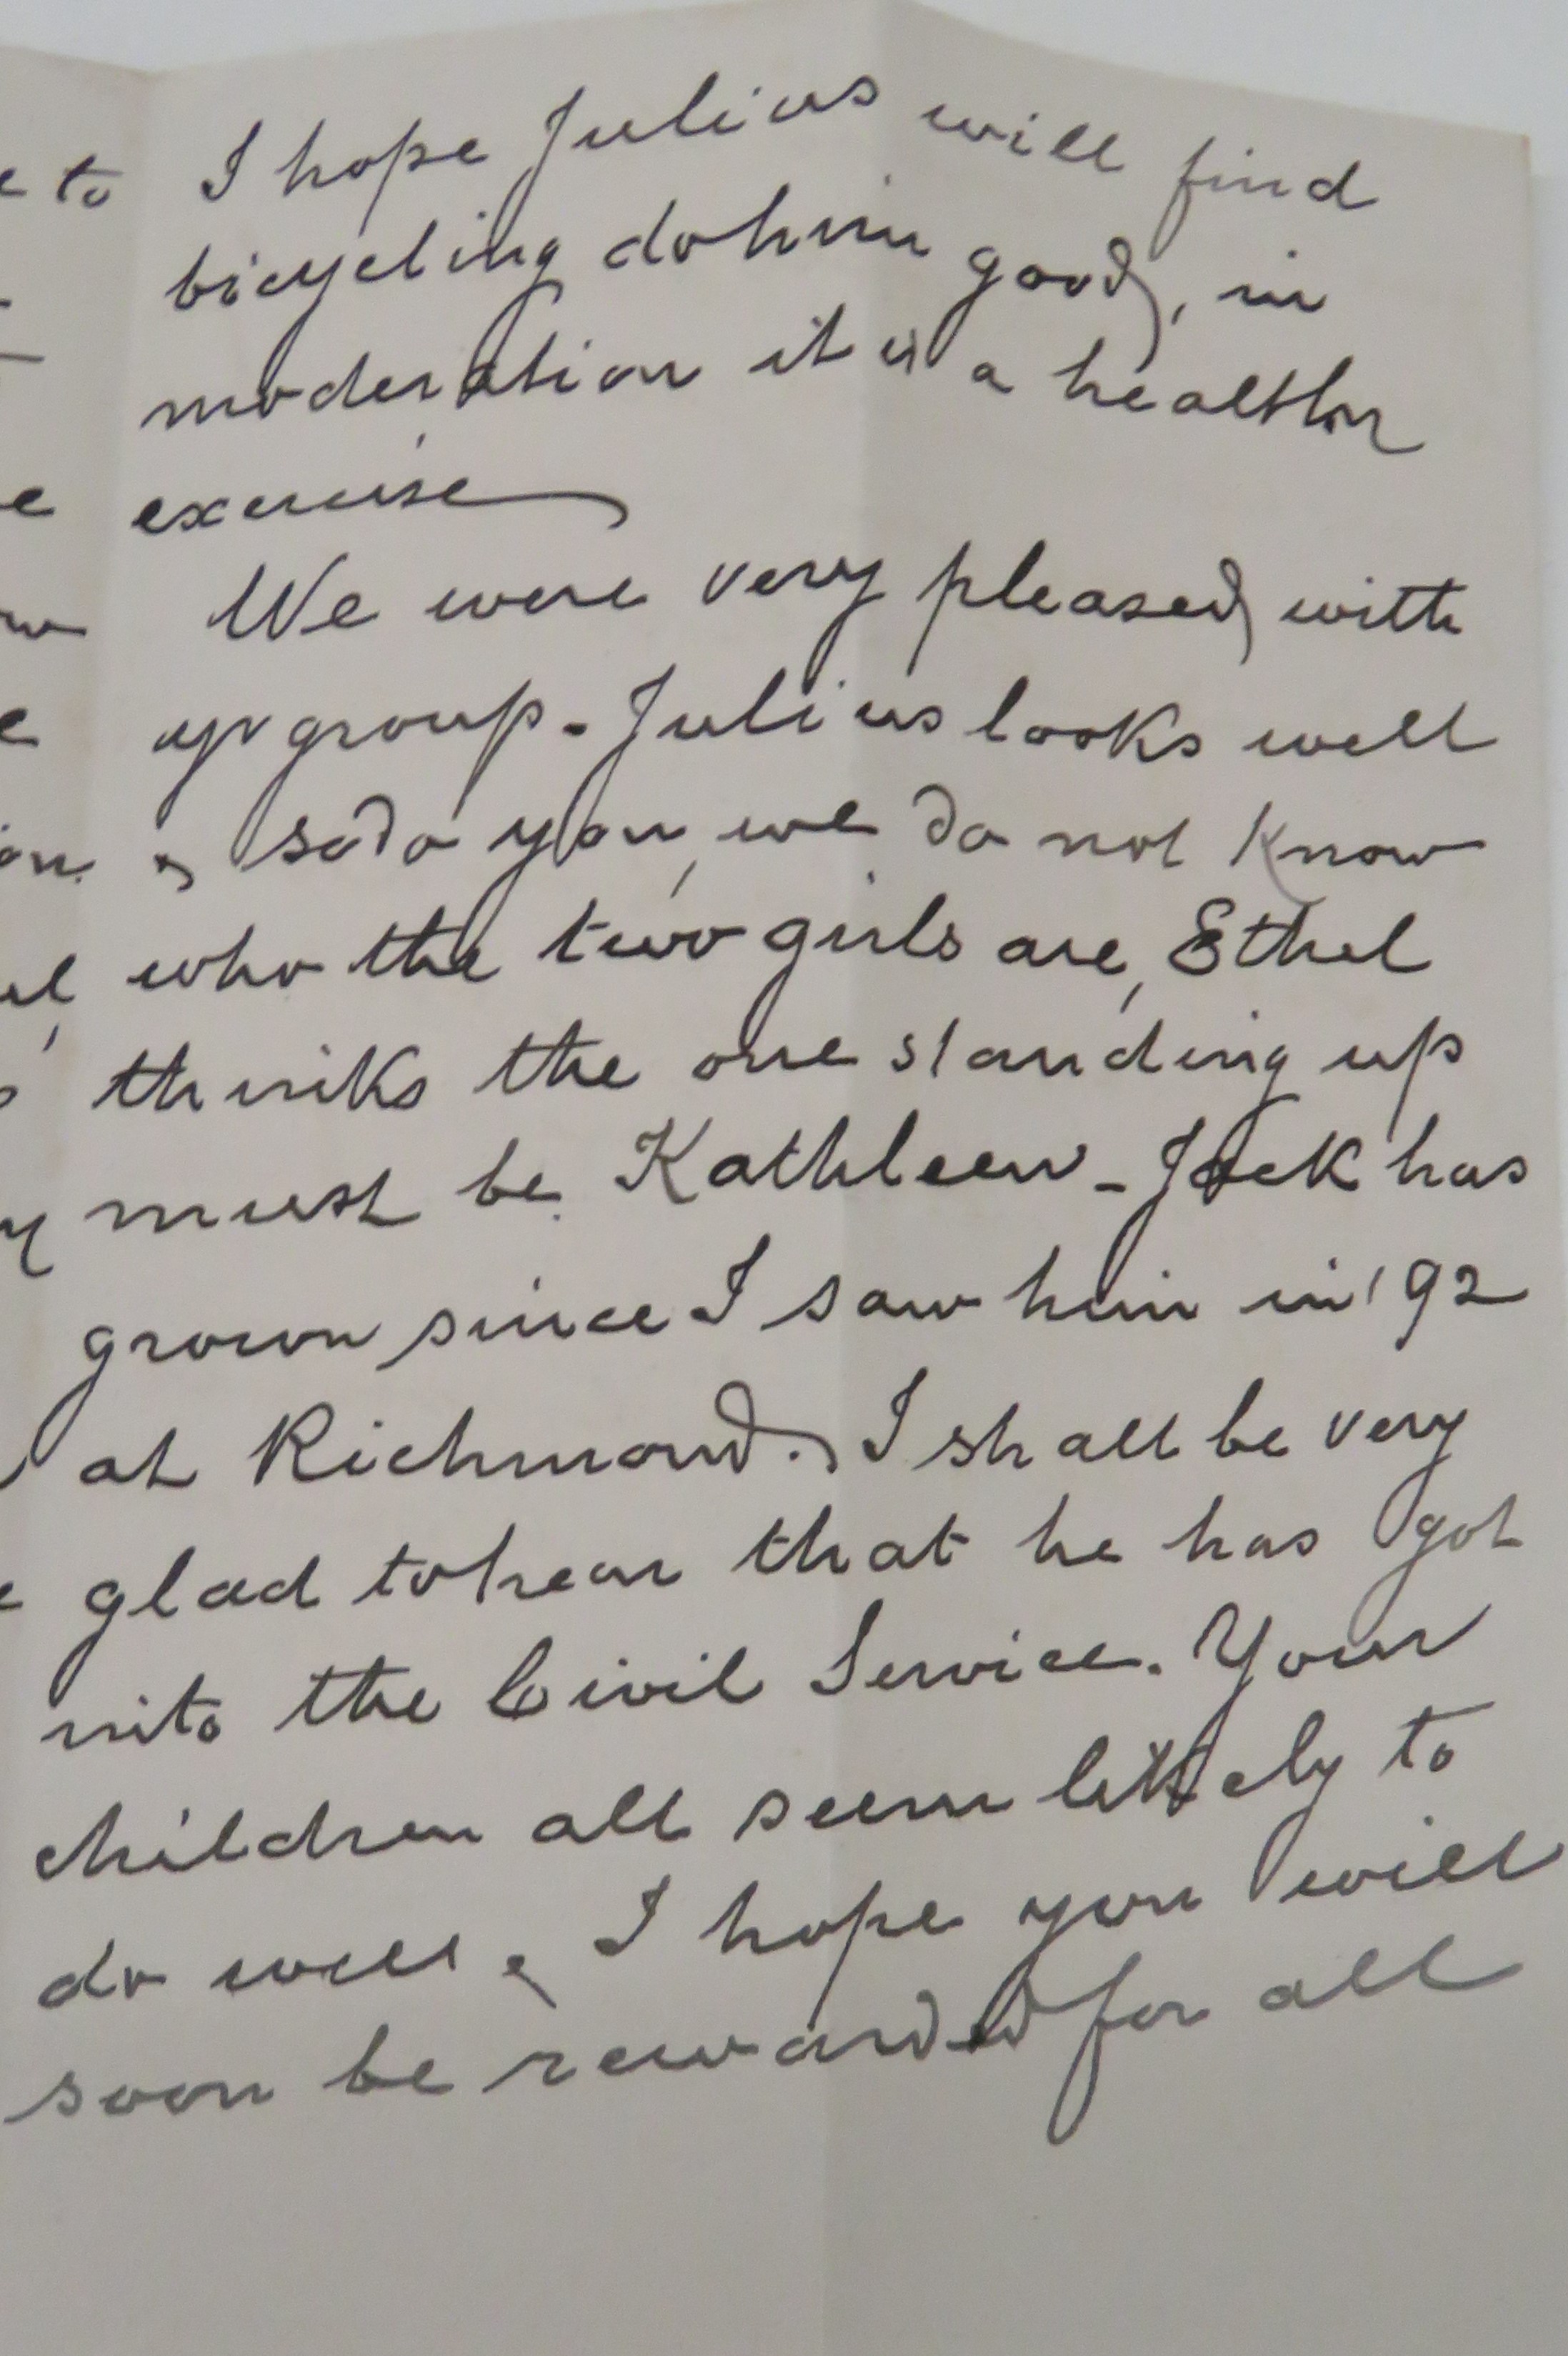 I hope Julius will find
bicycling do him good, in
moderation it is a healthy
exercise
We were very pleased with
yr group - Julius looks well
& so do you, we do not know
who the two girls are, Ethel
thinks the one standing up
must be Kathleen - Jack has
grown since I saw him in '92
at Richmond. I shall be very
glad to hear that he has got
into the Civil Service. Your
children all seem likely to
do well & I hope you will
soon be rewarded for all